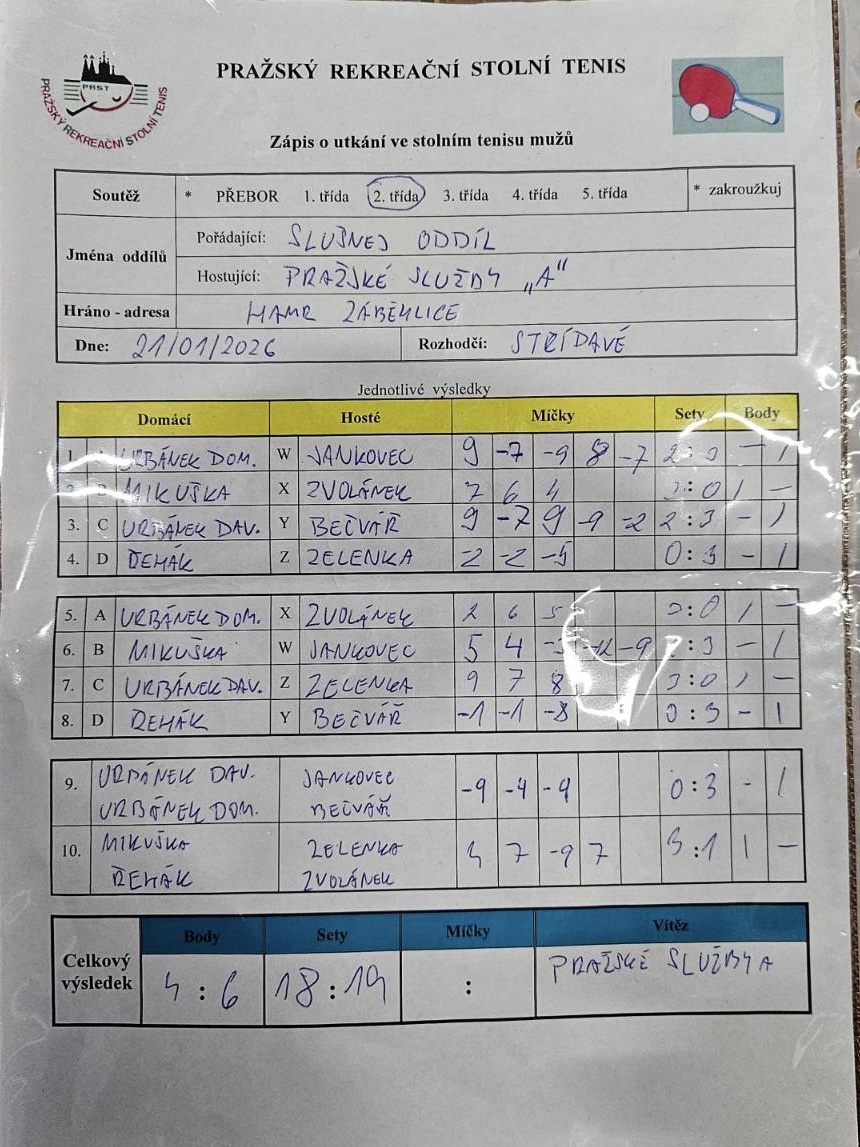 PRAŽSKÝ REKREAČNÍ STOLNÍ TENIS
PRST
PRAŽSKÝ REKREAČNÍ STOLNÍ TENIS
Zápis o utkání ve stolním tenisu mužů
Soutěž * PŘEBOR 1. třída 2. třída 3. třída 4. třída 5. třída * zakroužkuj
Jména oddílů
Pořádající: SLUŠNEJ ODDÍL
Hostující: PRAŽSKÉ SLUŽBY „A“
Hráno - adresa HAMR ZÁBĚHLICE
Dne: 21/01/2026 Rozhodčí: STŘÍDAVĚ
Jednotlivé výsledky
Domácí Hosté Míčky Sety Body
1. URBÁNEK DOM. W JANKOVEC 9 -7 -9 8 -7 2: - 1
MIKUŠKA X ZVOLÁNEK 7 6 4 3:0 1 -
3. C URBÁNEK DAV. Y BEČVÁŘ 9 -7 9 -9 -2 2:3 - 1
4. D ŘEHÁK Z ZELENKA -2 -2 -5 0:3 - 1
5. A URBÁNEK DOM. X ZVOLÁNEK 2 6 5 3:0 1 -
6. B MIKUŠKA W JANKOVEC 5 4 -9 :3 - 1
7. C URBÁNEK DAV. Z ZELENKA 9 7 8 3:0 1 -
8. D ŘEHÁK Y BEČVÁŘ -1 -1 -8 0:3 - 1
9. URBÁNEK DAV. JANKOVEC -9 -4 -9 0:3 - 1
URBÁNEK DOM. BEČVÁŘ
10. MIKUŠKA ZELENKA 4 7 -9 7 3:1 1 -
ŘEHÁK ZVOLÁNEK
Celkový výsledek
Body Sety Míčky Vítěz
4 : 6 18 : 19 : PRAŽSKÉ SLUŽBY A